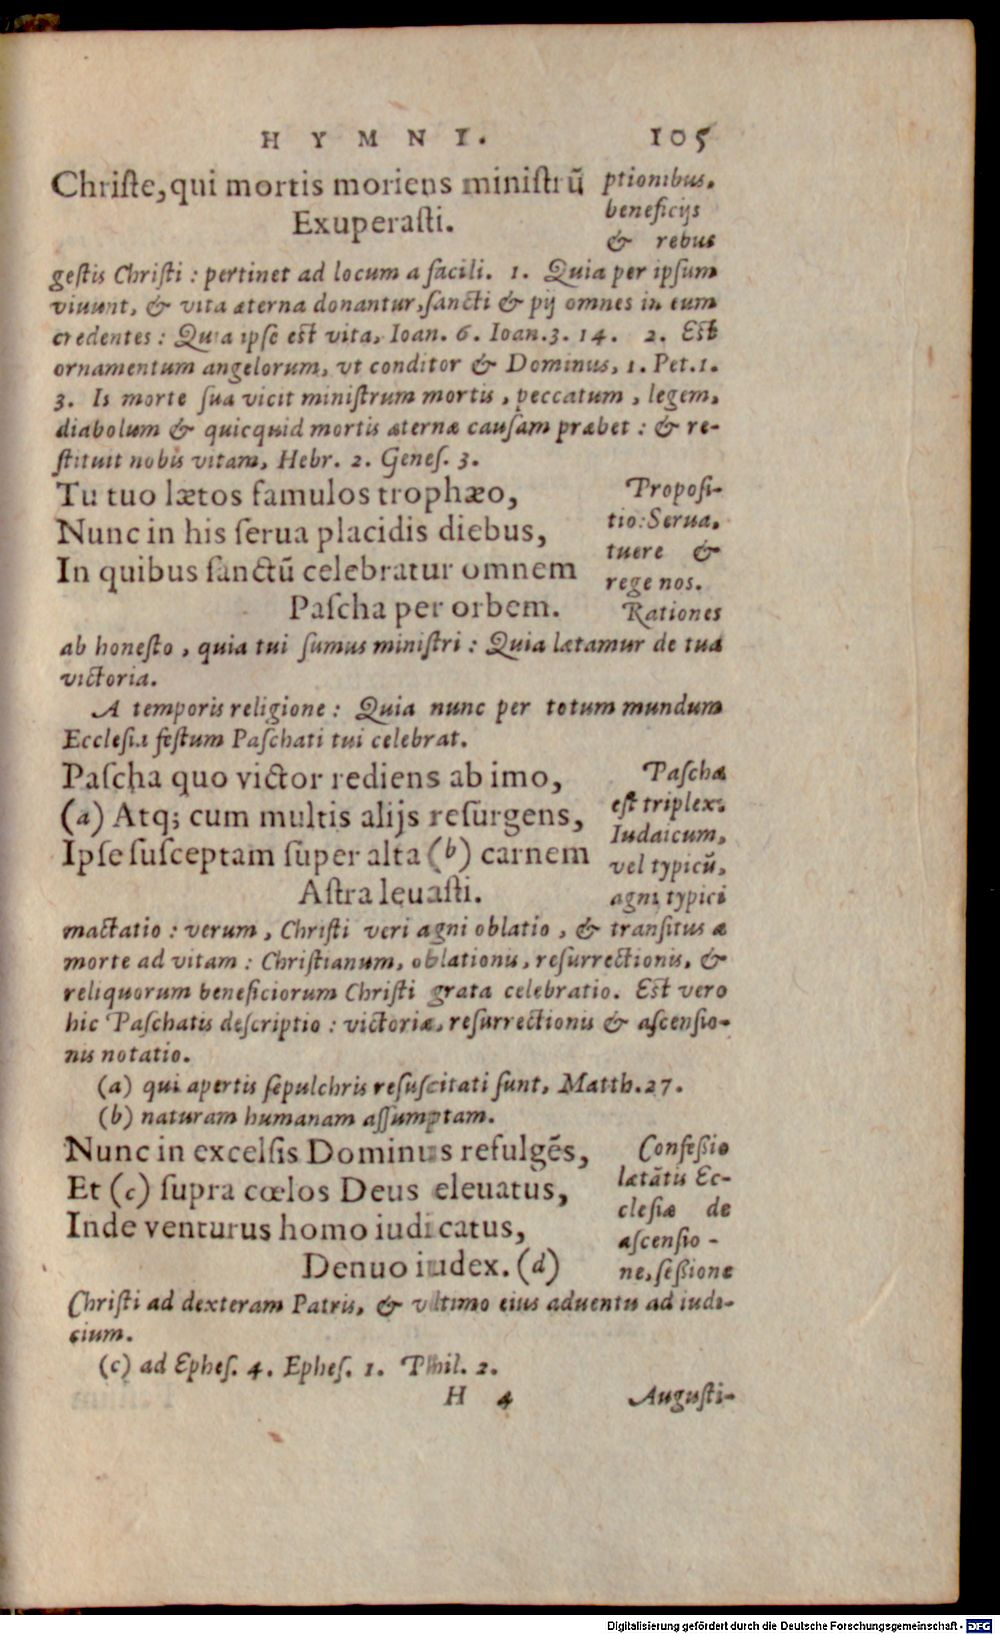 HYMNI. 105
Christe, qui mortis moriens ministrũ
Exuperasti.
ptionibus,
beneficijs
& rebus
gestis Christi : pertinet ad locum a facili. 1. Quia per ipsum
viuunt, & vita æterna donantur, sancti & pij omnes in eum
credentes : Quia ipse est vita, Ioan. 6. Ioan. 3. 14. 2. Est
ornamentum angelorum, vt conditor & Dominus, 1. Pet. 1.
3. Is morte sua vicit ministrum mortis, peccatum, legem,
diabolum & quicquid mortis æternæ causam præbet : & re-
stituit nobis vitam, Hebr. 2. Genes. 3.
Tu tuo lætos famulos trophæo,
Nunc in his serua placidis diebus,
In quibus sanctũ celebratur omnem
Pascha per orbem.
Proposi-
tio: Serua,
tuere &
rege nos.
Rationes
ab honesto, quia tui sumus ministri : Quia lætamur de tua
victoria.
A temporis religione : Quia nunc per totum mundum
Ecclesia festum Paschati tui celebrat.
Pascha quo victor rediens ab imo,
(a) Atq; cum multis alijs resurgens,
Ipse susceptam super alta (b) carnem
Astra leuasti.
Pascha
est triplex:
Iudaicum,
vel typicũ,
agni typici
mactatio : verum, Christi veri agni oblatio, & transitus a
morte ad vitam : Christianum, oblationis, resurrectionis, &
reliquorum beneficiorum Christi grata celebratio. Est vero
hic Paschatis descriptio : victoriæ, resurrectionis & ascensio-
nis notatio.
(a) qui apertis sepulchris resuscitati sunt, Matth. 27.
(b) naturam humanam assumptam.
Nunc in excelsis Dominus refulgẽs,
Et (c) supra cœlos Deus eleuatus,
Inde venturus homo iudicatus,
Denuo iudex. (d)
Confeßio
lætãtis Ec-
clesiæ de
ascensio-
ne, seßione
Christi ad dexteram Patris, & vltimo eius aduentu ad iudi-
cium.
(c) ad Ephes. 4. Ephes. 1. Phil. 2.
H 4 Augusti-
Digitalisierung gefördert durch die Deutsche Forschungsgemeinschaft - DFG